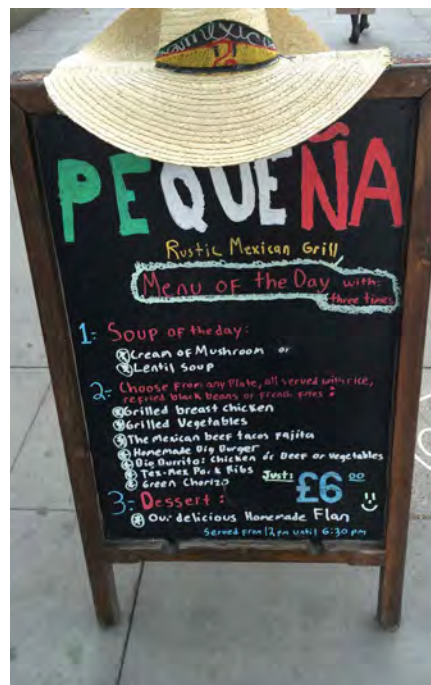 PEQUEÑA
Rustic Mexican Grill
Menu OF the Day with:
three times
1- Soup of the day:
Cream of Mushroom or
Lentil Soup
2- Choose from any Plate, all served with rice,
refried black beans or French fries:
Grilled breast chicken
Grilled Vegetables
The Mexican beef tacos Fajita
Homemade Big Burger
Big Burrito: Chicken or Beef or vegetables
Tex-Mex Pork Ribs
Green Chorizo
Just: £6.00
3- Dessert:
Our delicious Homemade Flan
Served from 12pm until 6:30 pm